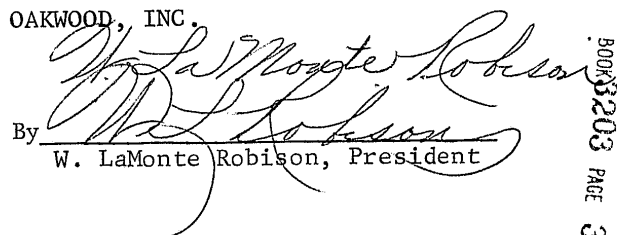 OAKWOOD, INC.
W. La Monte Robison
By W L Robison
W. LaMonte Robison, President
BOOK 3203 PAGE 3